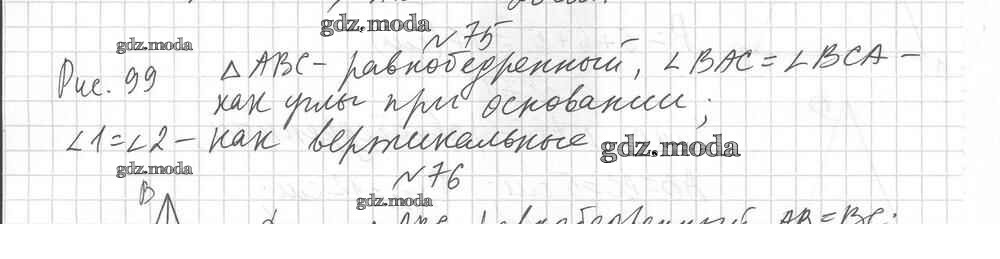 gdz.moda
№ 75
gdz.moda
Рис. 99 △ABC - равнобедренный, ∠BAC = ∠BCA -
как углы при основании;
∠1=∠2 - как вертикальные gdz.moda
gdz.moda № 76
gdz.moda
B AB = BC;